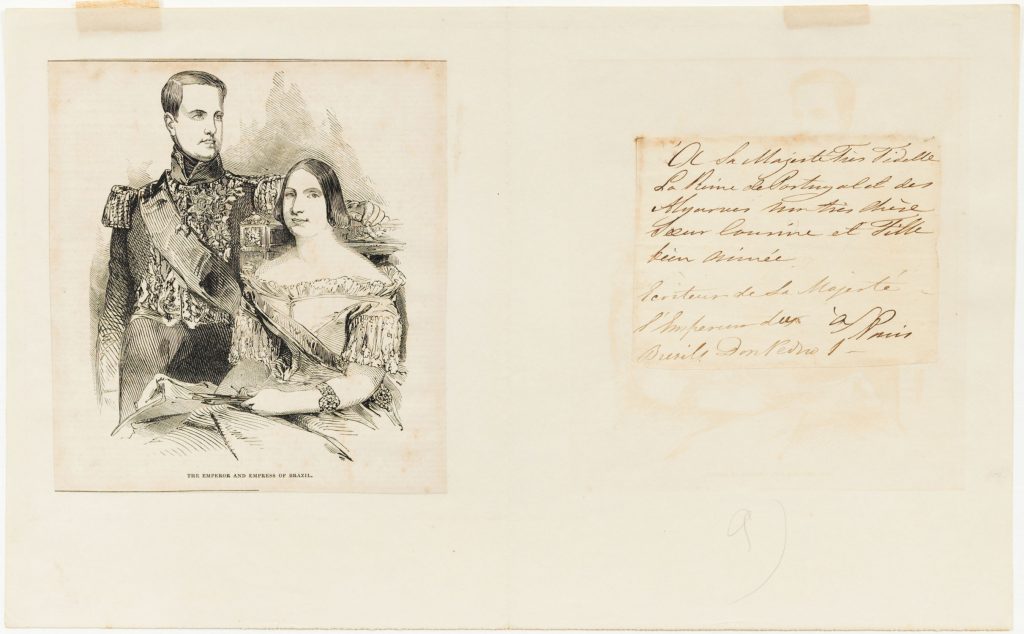 THE EMPEROR AND EMPRESS OF BRAZIL.
A Sa Majesté Très Fidelle
La Reine de Portugal et des
Algarves ma très chère
Sœur Cousine et Fille
bien aimée
Ecriture de Sa Majesté
l'Empereur du à Paris
Bresil Don Pedro 1
9)